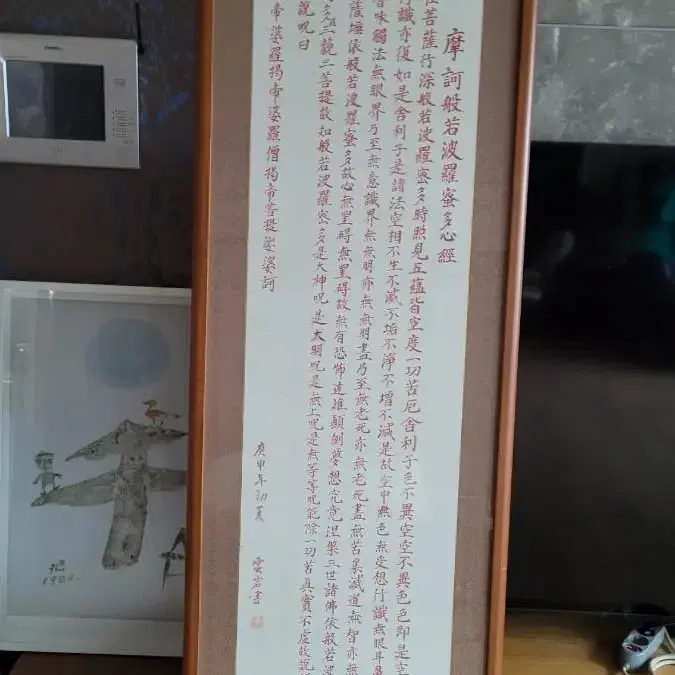 摩訶般若波羅蜜多心經
在菩薩行深般若波羅蜜多時照見五蘊皆空度一切苦厄舍利子色不異空空不異色色即是空
行識亦復如是舍利子是諸法空相不生不滅不垢不淨不增不減是故空中無色無受想行識無眼耳鼻
香味觸法無眼界乃至無意識界無無明亦無無明盡乃至無老死亦無老死盡無苦集滅道無智亦無
薩埵依般若波羅蜜多故心無罣碍無罣碍故無有恐怖遠離顛倒夢想究竟涅槃三世諸佛依般若波
多三藐三菩提故知般若波羅蜜多是大神呪是大明呪是無上呪是無等等呪能除一切苦真實不虛故說
說呪曰
帝婆羅揭帝婆羅僧揭帝菩提娑婆訶
庚申年初夏 雲岩書